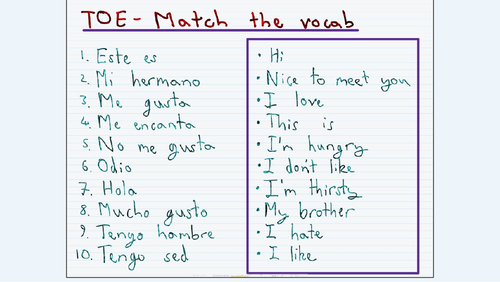 TOE - Match the vocab
1. Este es
2. Mi hermano
3. Me gusta
4. Me encanta
5. No me gusta
6. Odio
7. Hola
8. Mucho gusto
9. Tengo hambre
10. Tengo sed
• Hi
• Nice to meet you
• I love
• This is
• I'm hungry
• I don't like
• I'm thirsty
• My brother
• I hate
• I like